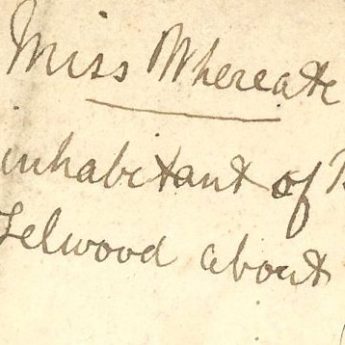 Miss Whereate
inhabitant of
Lelwood about